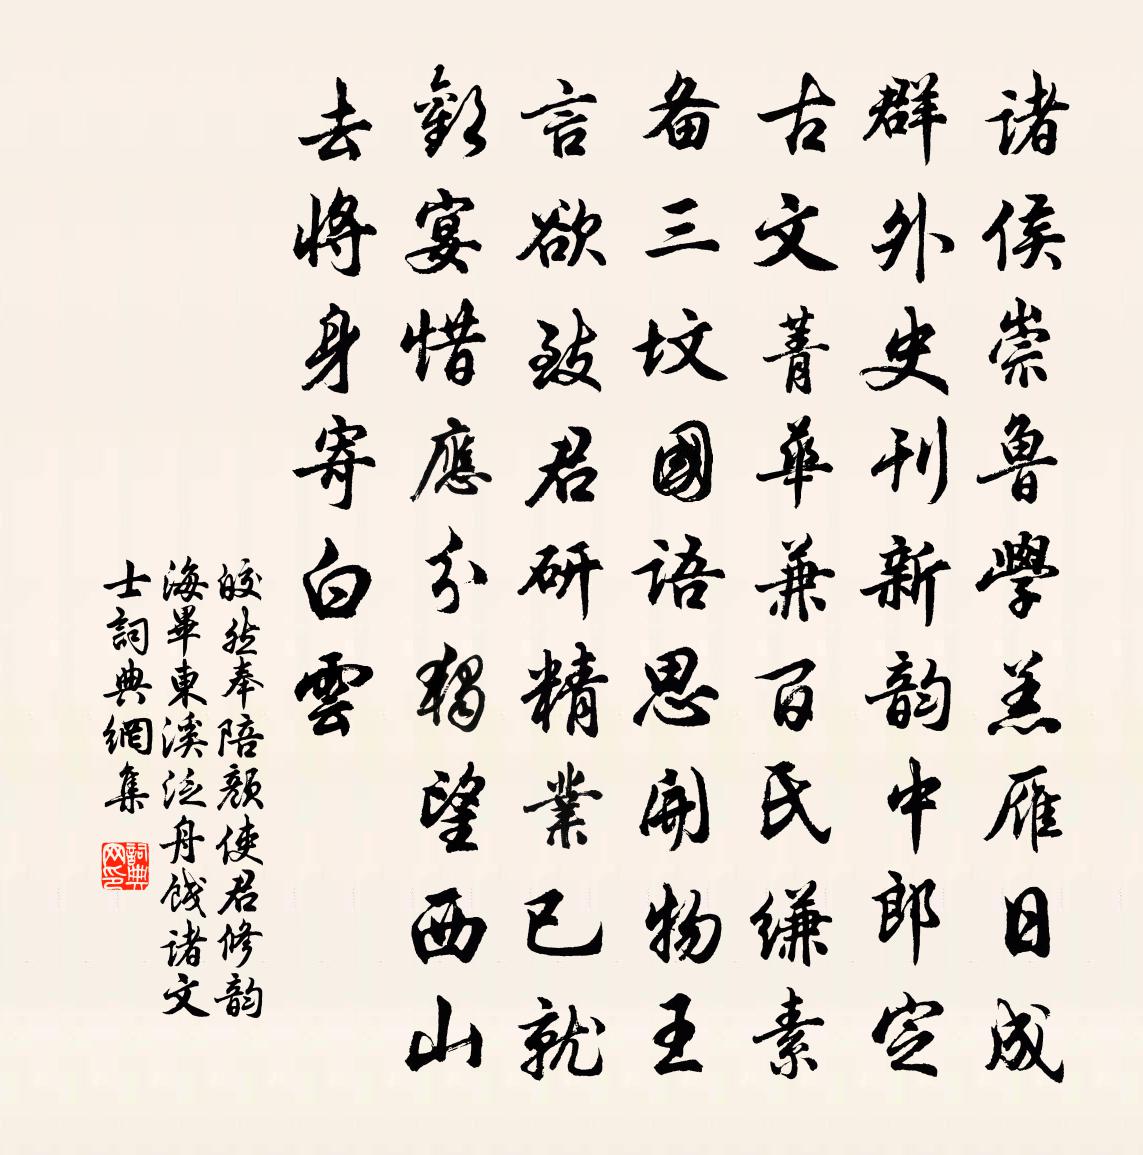 诸侯崇鲁學羔雁日成
群外史刊新韵中郎定
古文菁華兼百氏缣素
备三坟國語思開物王
言欲致君研精業已就
歡宴惜應分獨望西山
去將身寄白雲
皎然奉陪颜使君修韵
海畢東溪泛舟餞诸文
士詞典網集
詞典
网印